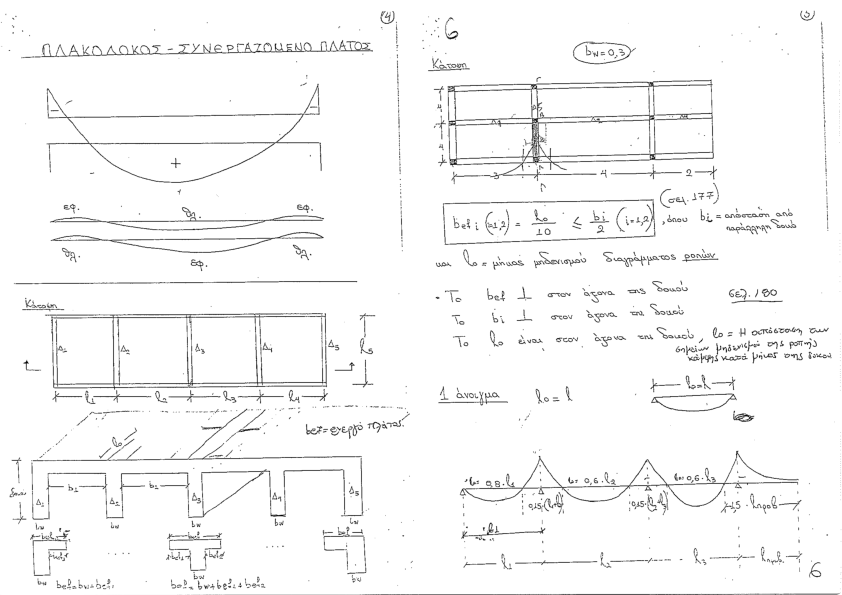 ④
ΠΛΑΚΟΔΟΚΟΣ - ΣΥΝΕΡΓΑΖΟΜΕΝΟ ΠΛΑΤΟΣ
εφ. θλ. εφ.
θλ. εφ. θλ.
Κάτοψη
Δ1 Δ2 Δ3 Δ4 Δ5 l5
l1 l2 l3 l4
bef = ενεργό πλάτος
lo
b1 b2
Δ1 Δ2 Δ3 Δ4 Δ5
bw bw bw bw bw
bef
bw bw bw
bef = bw + bef1
bef = bw + bef1 + bef2
6
bw = 0,3
Κάτοψη
4
4
3 4 2
(σελ. 177)
bef i (=1,2) = lo/10 ≤ bi/2 (i=1,2), όπου bi = απόσταση από
παράλληλη δοκό
και lo = μήκος μηδενισμού διαγράμματος ροπών
• Το bef ⊥ στον άξονα της δοκού σελ. 180
Το bi ⊥ στον άξονα της δοκού
Το lo είναι στον άξονα της δοκού, lo = Η απόσταση των
σημείων μηδενισμού της ροπής
κάμψης κατά μήκος της δοκού
lo = l
1 άνοιγμα lo = l
lo = 0,8 · l1 lo = 0,6 · l2 lo = 0,6 · l3
0,15·(l1+l2) 0,15·(l2+l3) 1,5 · lπροβ
l1 l2 l3 lπροβ.
6